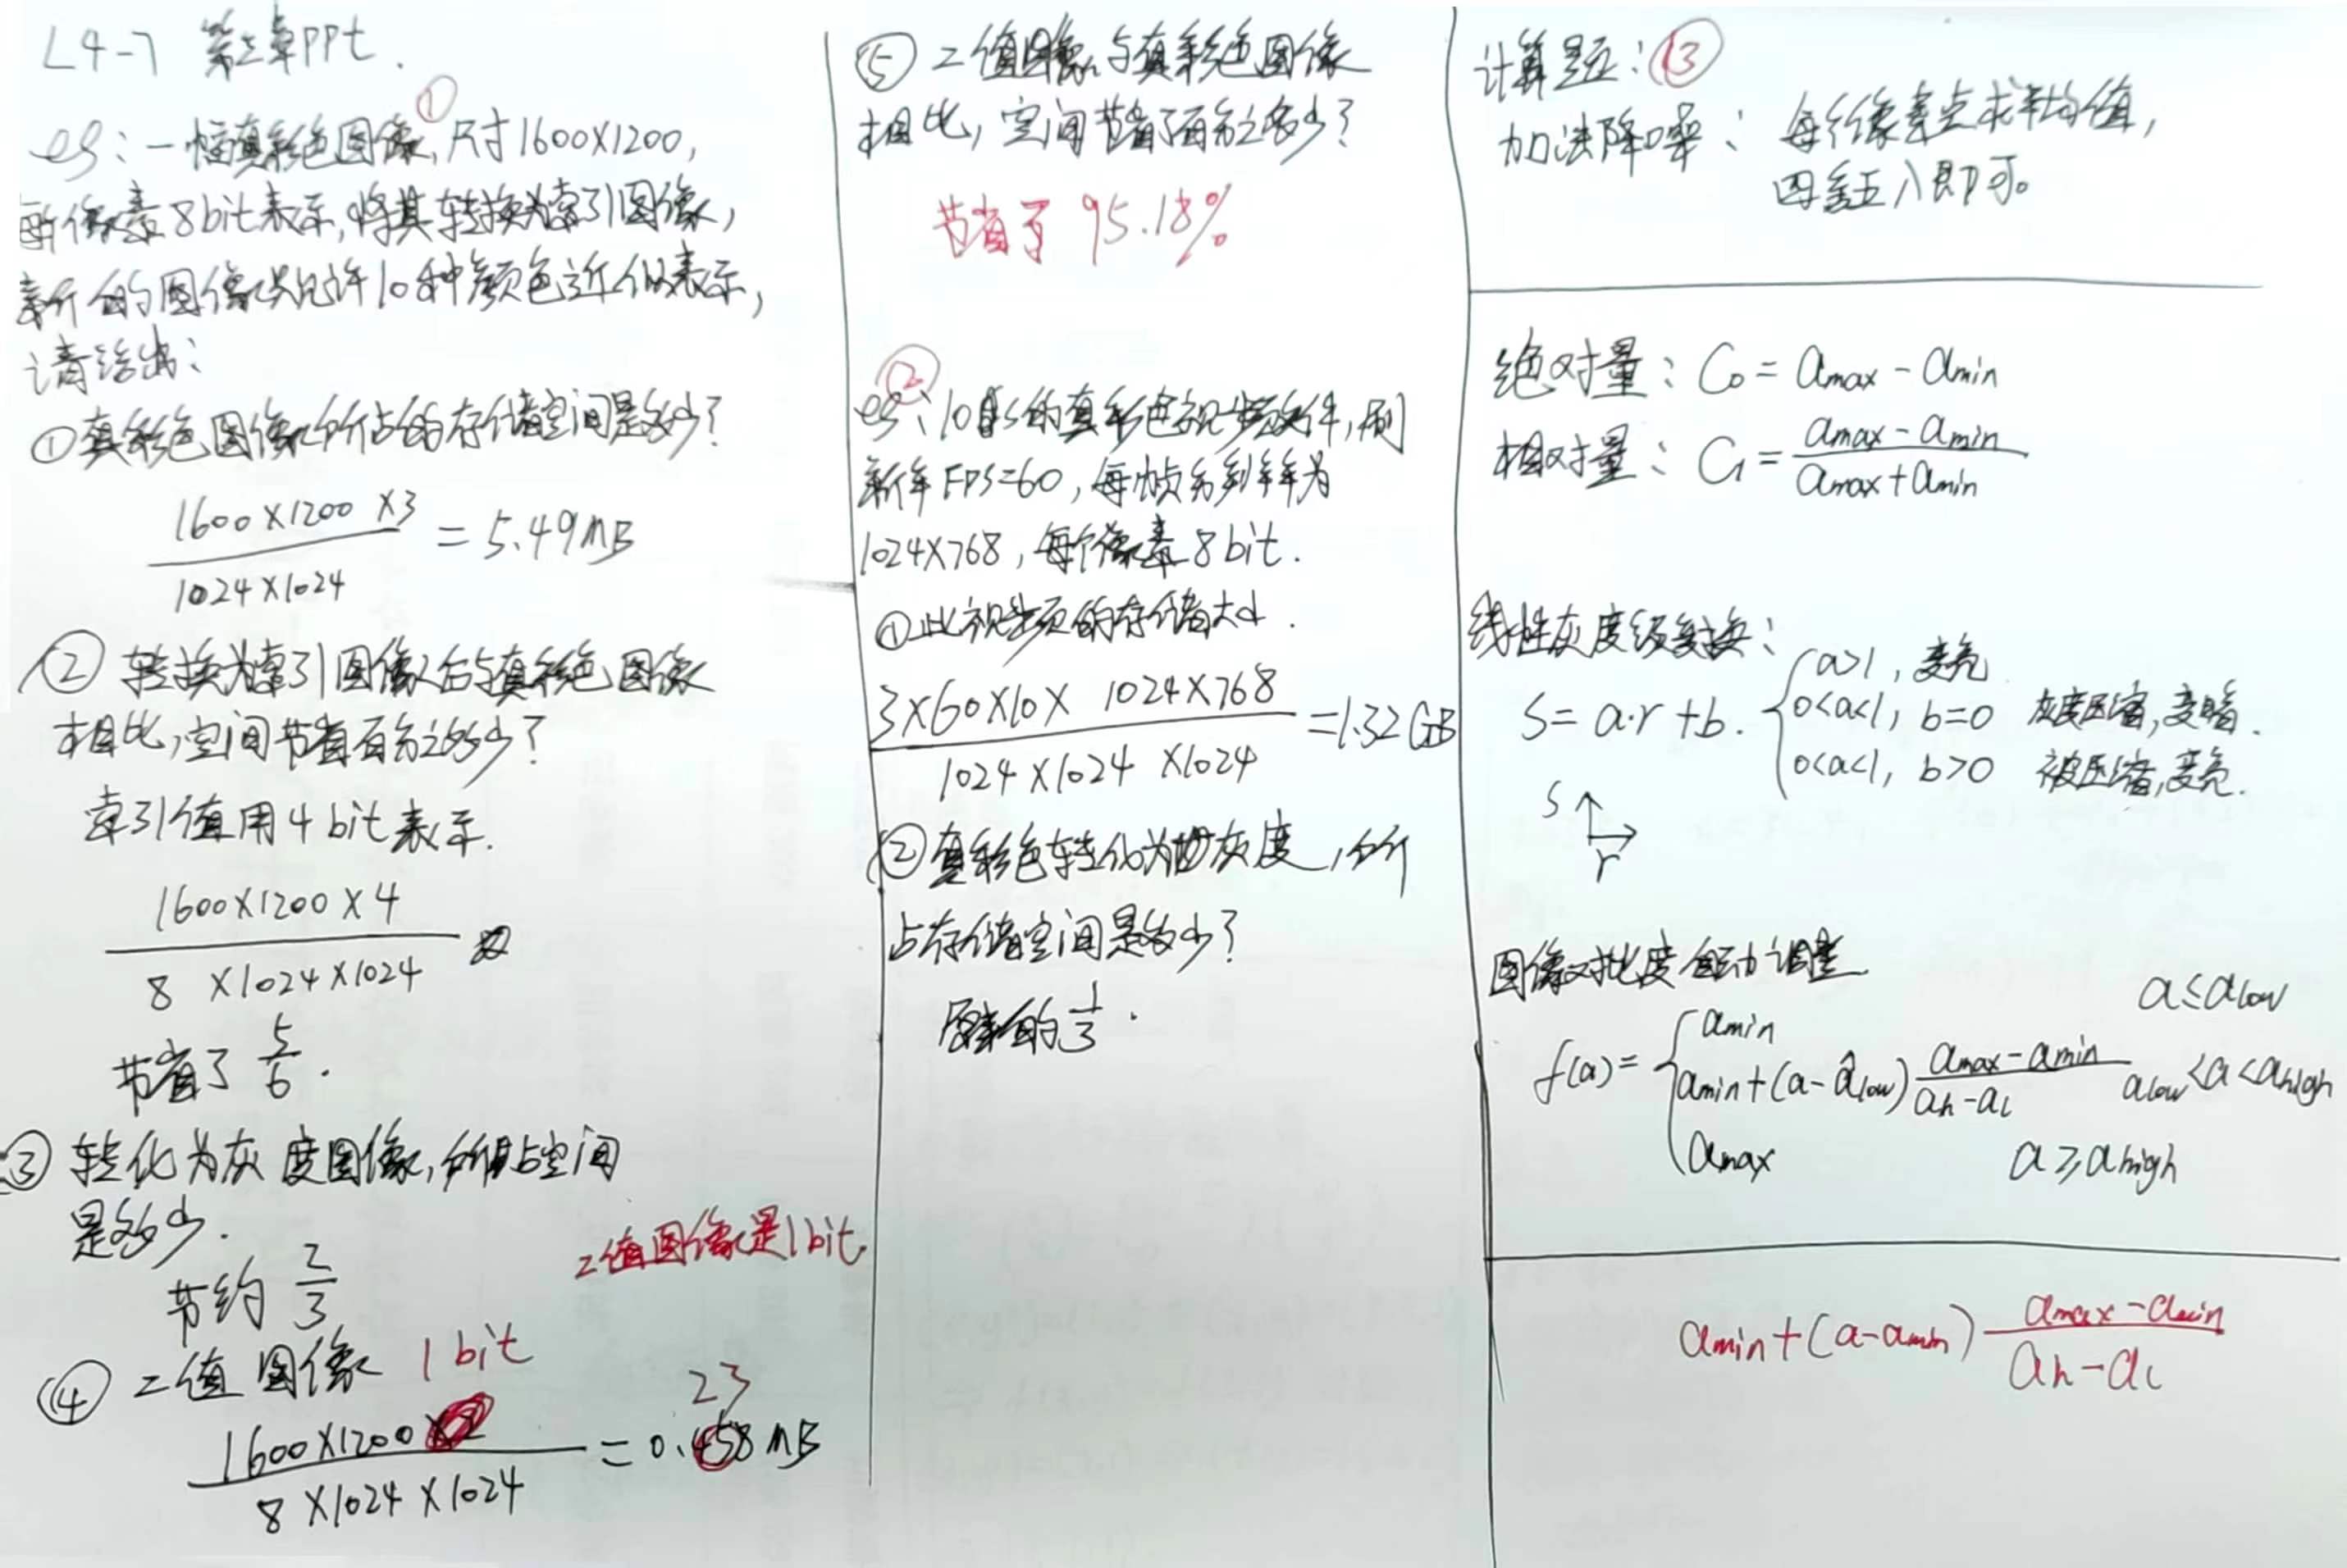 L4-7 第二章PPt.
①
eg:一幅真彩色图像,尺寸1600×1200,
每个像素8bit表示,将其转换为索引图像,
新的图像只允许10种颜色近似表示,
请给出:
①真彩色图像所占的存储空间是多少?
1600×1200 ×3
= 5.49MB
1024×1024
② 转换为索引图像后与真彩色图像
相比,空间节省百分之多少?
索引值用4bit表示.
1600×1200×4
8 ×1024×1024
节省了 5/6.
③ 转化为灰度图像,所占空间
是多少.
节约 2/3
二值图像是1bit.
④ 二值图像 1bit
1600×1200
23
= 0.458MB
8×1024×1024
⑤ 二值图像与真彩色图像
相比,空间节省了百分之多少?
节省了 95.18%
②
eg:10秒的真彩色视频文件,刷
新率FPS=60,每帧分辨率为
1024×768,每个像素8bit.
①此视频的存储大小.
3×60×10× 1024×768
=1.32GB
1024×1024 ×1024
②真彩色转化为灰度,所
占存储空间是多少?
原来的 1/3.
计算题:③
加法降噪: 每个像素点求平均值,
四舍五入即可。
绝对量: C₀ = amax - amin
相对量: C₁ = (amax - amin)/(amax + amin)
线性灰度级变换:
a>1, 变亮
S = a·r + b.
0<a<1, b=0 灰度压缩,变暗.
0<a<1, b>0 被压缩,变亮.
S
r
图像对比度自动调整
a≤alow
amin
f(a)= amin+(a-âlow) (amax-amin)/(ah-al) alow<a<ahigh
amax a≥ahigh
amin+(a-amin) (amax-amin)/(ah-al)